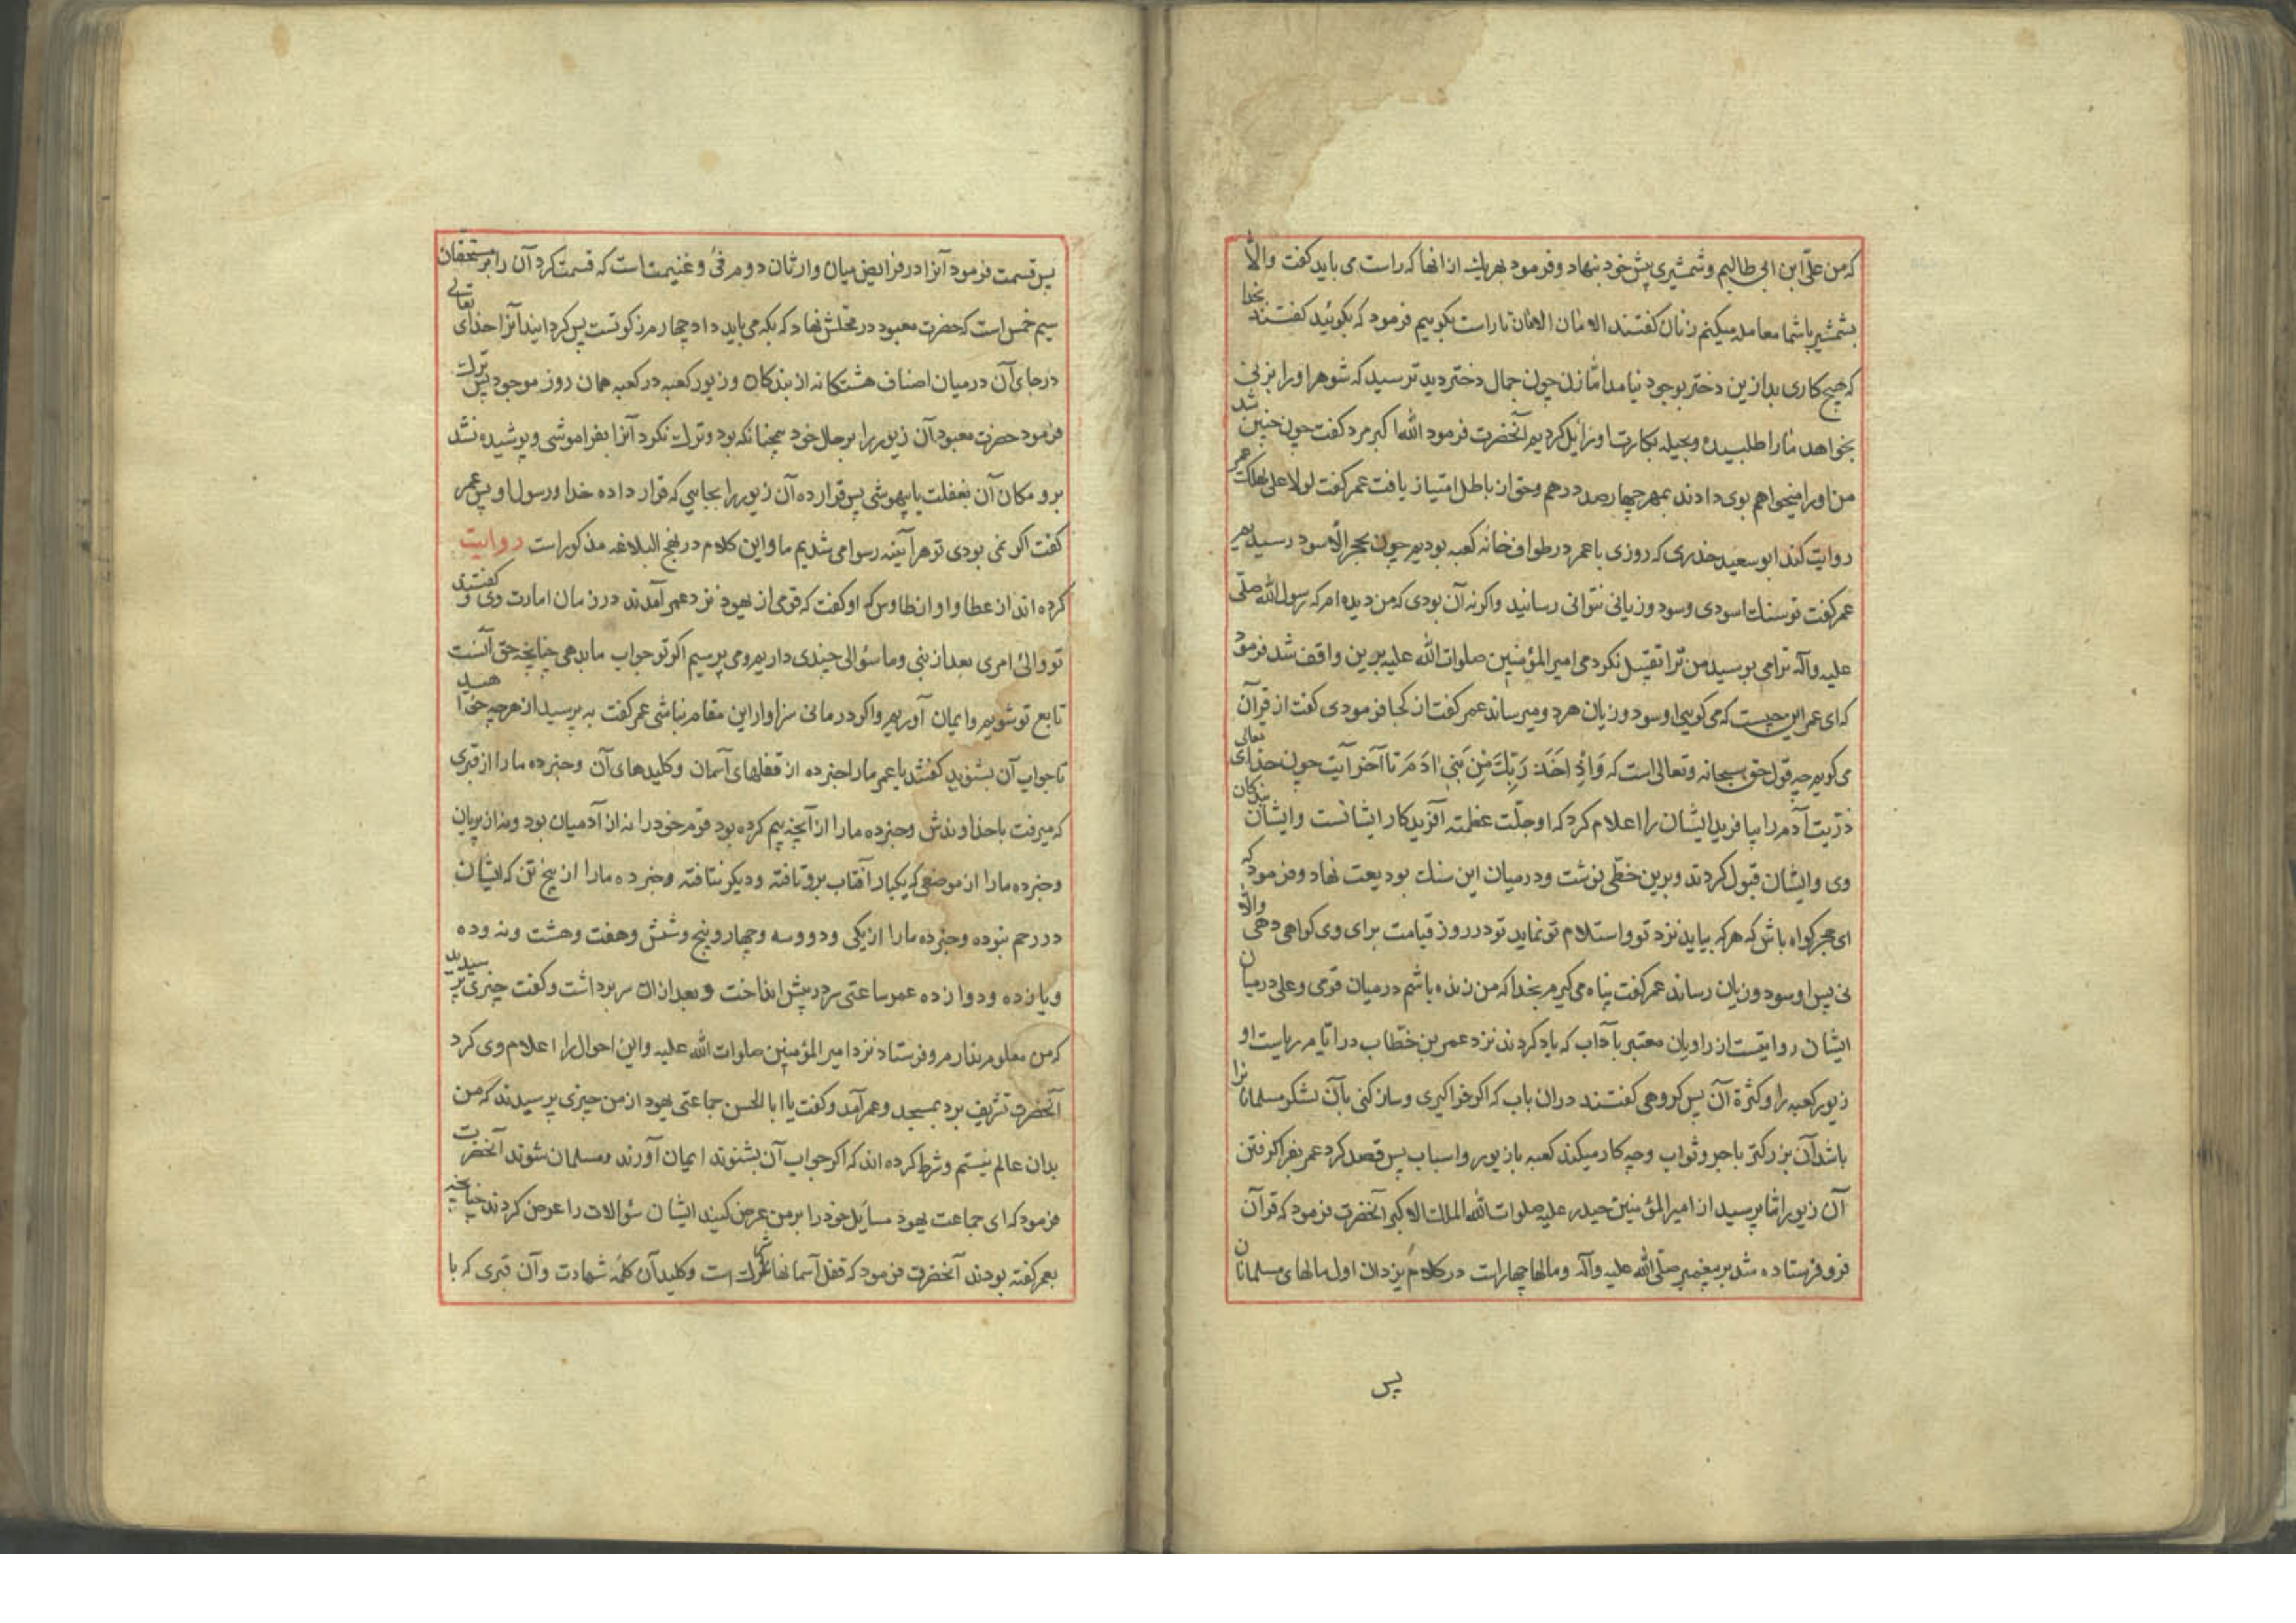 که من علی ابن ابی طالبم و شمشیری پیش خود بنهاد و فرمود بهریك از انها که راست می باید کفت والّا
بشمشیر باشما معامله میکنم زنان کفتند الامان الامان تا راست بکوییم فرمود که بکوئید کفتند بخدا
که هیچ کاری بد ازین دختر بوجود نیامد امّا زن چون جمال دختر دید ترسید که شوهر او را بزنی
بخواهد مارا طلبیده و بحیله بکارت او زایل کردیم آنحضرت فرمود الله اکبر مرد کفت چون چنین شد
من او را میخواهم بوی دادند بمهر چهارصد درهم و حق از باطل امتیاز یافت عمر کفت لولا علی لهلك عمر
روایت کند ابو سعید خدری که روزی با عمر در طواف خانه کعبه بودیم چون بحجر الاسود رسیدیم
عمر کفت تو سنك اسودی و سود و زیانی نتوانی رسانید واکر نه آن بودی که من دیده ام که رسول الله صلّی
علیه وآله ترا می بوسید من ترا تقبیل نکردمی امیر المؤمنین صلوات الله علیه برین واقف شد فرمود
که ای عمر این چیست که می کویی او سود و زیان هر دو میرساند عمر کفت از کجا فرمودی کفت از قرآن
می کویم چه قول حق سبحانه و تعالی است که وَاِذْ اَخَذَ رَبُّكَ مِنْ بَنی ادَمَ تا آخر آیت چون خدای تعالی
ذرّیت آدم را بیافرید ایشان را اعلام کرد که او جلّت عظمته آفریدکار ایشانست و ایشان بندکان
وی و ایشان قبول کردند و برین خطّی نوشت و درمیان این سنك بودیعت نهاد و فرمود که
ای حجر کواه باش که هرکه بیاید نزد تو و استلام تو نماید تو در روز قیامت برای وی کواهی دهی والّا
نی پس او سود و زیان رساند عمر کفت پناه می کیرم بخدا که من زنده باشم درمیان قومی و علی درمیان
ایشان روایتست از راویان معتبر با آداب که یاد کردند نزد عمر بن خطّاب در ایّام ریاست او
زیور کعبه را و کثرة آن پس کروهی کفتند دران باب که اکر فراکیری و ساز کنی بآن لشکر مسلمانانرا
باشد آن بزرکتر باجر و ثواب و چه کار میکند کعبه با زیور و اسباب پس قصد کرد عمر بفراکرفتن
آن زیور امّا پرسید از امیر المؤمنین حیدر علیه صلوات الله الملك الاکبر آنحضرت فرمود که قرآن
فرو فرستاده شد بر پیغمبر صلّی الله علیه وآله و مالها چهار است در کلام یزدان اول مالهای مسلمانان
پس
پس قسمت فرمود آنرا در فرایض میان وارثان دوم فئ و غنیمت است که قسمت کرد آن را بر مستحقان
سیم خمس است که حضرت معبود در محلش نهاد که بکه می باید داد چهارم زکوتست پس کردانید آنرا خدای تعالی
در جای آن درمیان اصناف هشتکانه از بندکان و زیور کعبه در کعبه همان روز موجود پس ترك
فرمود حضرت معبود آن زیور را بر حال خود همچنانکه بود و ترك نکرد آنرا بفراموشی و پوشیده نشد
برو مکان آن بغفلت یا بیهوشی پس قرار ده آن زیور را بجایی که قرار داده خدا و رسول او پس عمر
کفت اکر نمی بودی تو هر آیینه رسوا می شدیم ما و این کلام در نهج البلاغه مذکور است روایت
کرده اند از عطا و او از طاوس که او کفت که قومی از یهود نزد عمر آمدند در زمان امارت وی و کفتند
تو والئ امری بعد از نبی و ما سؤالی چندی داریم و می پرسیم اکر تو جواب ما بدهی چنانچه حق آنست
تابع تو شویم و ایمان آوریم و اکر درمانی سزاوار این مقام نباشی عمر کفت به پرسید از هرچه خواهید
تا جواب آن بشنوید کفتند یا عمر مارا خبر ده از قفلهای آسمان و کلیدهای آن و خبر ده مارا از قبری
که میرفت با خداوندش و خبر ده مارا از آنچه بیم کرده بود قوم خود را نه از آدمیان بود و نه از پریان
و خبر ده مارا از موضعی که یکبار آفتاب برو تافته و دیکر نتافته و خبر ده مارا از پنج تن که ایشان
در رحم نبوده و خبر ده مارا از یکی و دو و سه و چهار و پنج و شش و هفت و هشت و نه و ده
و یازده و دوازده عمر ساعتی سر در پیش انداخت و بعد ازان سر برداشت و کفت چیزی پرسیدید
که من معلوم ندارم و فرستاد نزد امیر المؤمنین صلوات الله علیه و این احوال را اعلام وی کرد
آنحضرت تشریف برد بمسجد و عمر آمد و کفت یا ابا الحسن جماعتی یهود از من چیزی پرسیدند که من
بدان عالم نیستم و شرط کرده اند که اکر جواب آن بشنوند ایمان آورند و مسلمان شوند آنحضرت
فرمود که ای جماعت یهود مسایل خود را بر من عرض کنید ایشان سؤالات را عرض کردند چنانچه
بعمر کفته بودند آنحضرت فرمود که قفل آسمانها شرك است و کلید آن کلمه شهادت و آن قبری که با